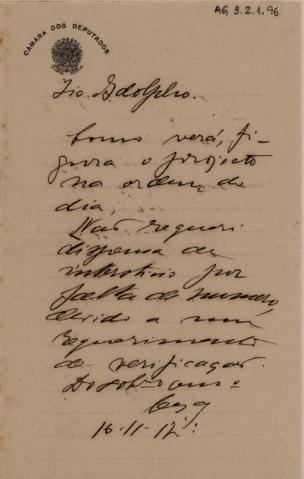 AG, 3.2.1.96
CAMARA DOS DEPUTADOS
Tio Gdolpho.
Como verá, fi-
gura o projecto
na ordem do
dia,
Não requeri
dispensa de
intersticio por
falta de numero,
devido a um
requerimento
de verificação.
Do sobr.º am.º
16-11-12.